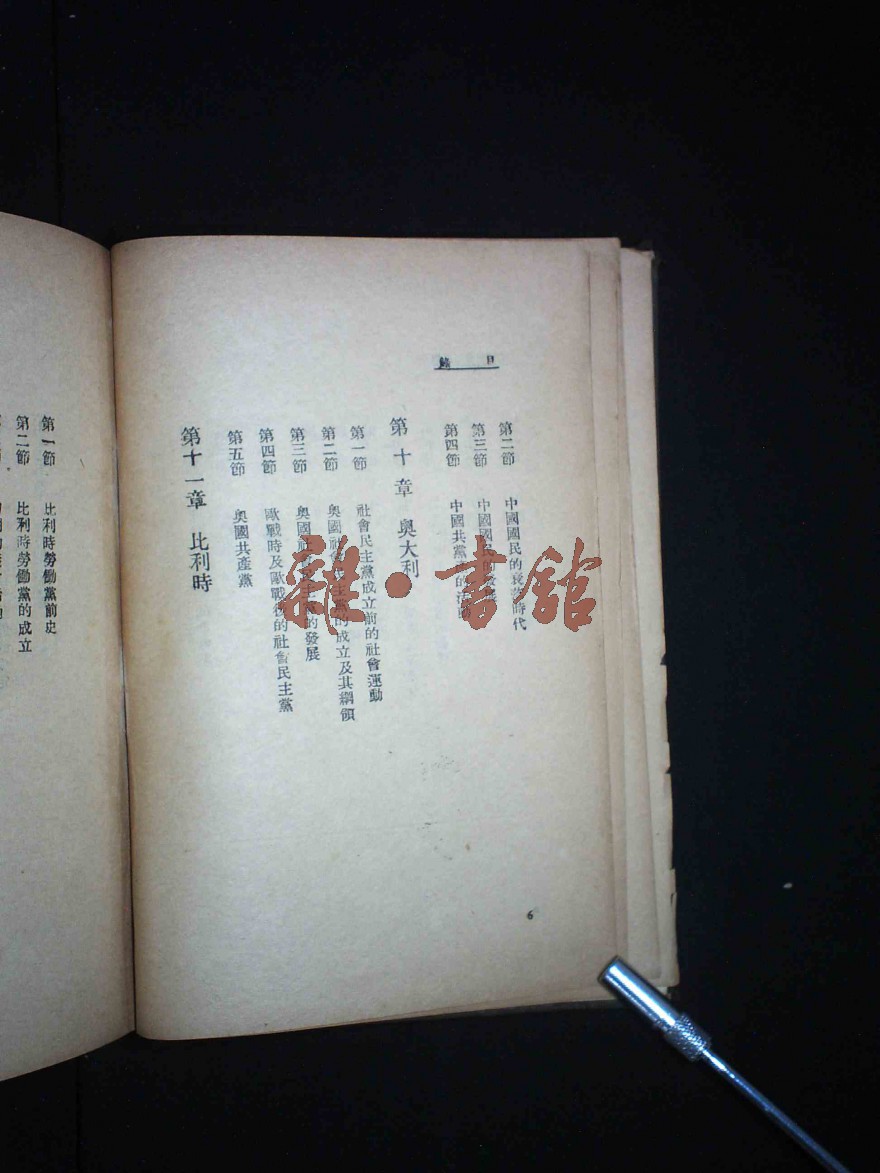 目錄
第二節 中國國民的衰落時代
第三節 中國國民的發展
第四節 中國共黨的活動
第十章 奧大利
第一節 社會民主黨成立前的社會運動
第二節 奧國社會民主黨的成立及其綱領
第三節 奧國社會民主黨的發展
第四節 歐戰時及歐戰後的社會民主黨
第五節 奧國共產黨
第十一章 比利時
6
第一節 比利時勞働黨前史
第二節 比利時勞働黨的成立
雜·書館